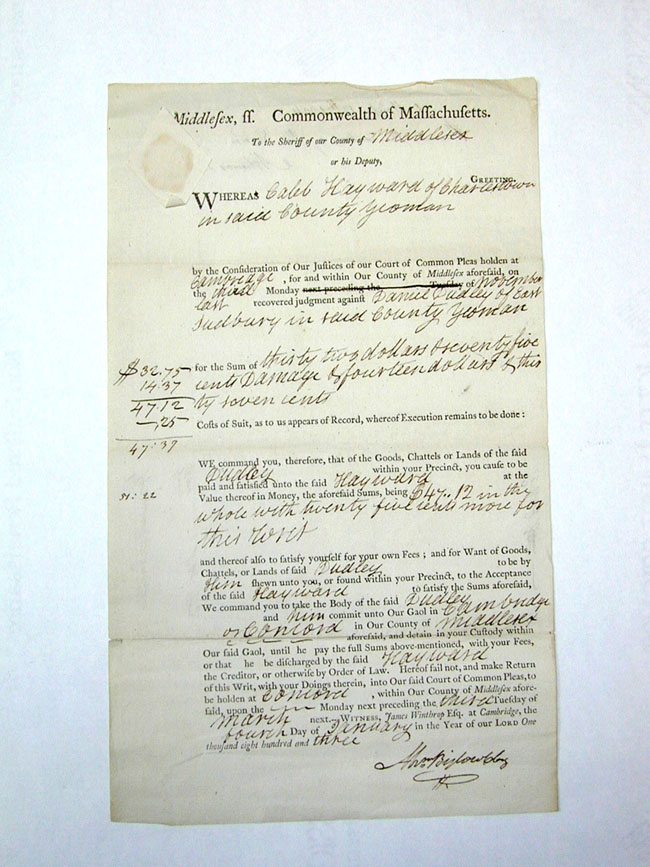 Middlesex, ss. Commonwealth of Massachusetts.
To the Sheriff of our County of Middlesex
or his Deputy,
GREETING.
WHEREAS Caleb Hayward of Charlestown
in said County Yeoman
by the Consideration of Our Justices of our Court of Common Pleas holden at
Cambridge, for and within Our County of Middlesex aforesaid, on
the third Monday next preceding the Tuesday of November
last recovered judgment against Daniel Dudley of East
Sudbury in said County Yeoman
for the Sum of thirty two dollars & seventy five
cents Damage & fourteen dollars & thir
ty seven cents
$32.75
14.37
47 12
—,25
47:37
Costs of Suit, as to us appears of Record, whereof Execution remains to be done:
WE command you, therefore, that of the Goods, Chattels or Lands of the said
Dudley within your Precinct, you cause to be
paid and satisfied unto the said Hayward at the
Value thereof in Money, the aforesaid Sums, being $47..12 in the
whole with twenty five cents more for
this Writ
51:22
and thereof also to satisfy yourself for your own Fees; and for Want of Goods,
Chattels, or Lands of said Dudley to be by
him shewn unto you, or found within your Precinct, to the Acceptance
of the said Hayward to satisfy the Sums aforesaid,
We command you to take the Body of the said Dudley
and him commit unto Our Gaol in Cambridge
or Concord in Our County of Middlesex
aforesaid, and detain in your Custody within
Our said Gaol, until he pay the full Sums above-mentioned, with your Fees,
or that he be discharged by the said Hayward
the Creditor, or otherwise by Order of Law. Hereof fail not, and make Return
of this Writ, with your Doings therein, into Our said Court of Common Pleas, to
be holden at Concord, within Our County of Middlesex afore-
said, upon the Monday next preceding the third Tuesday of
March next.—WITNESS, James Winthrop Esq. at Cambridge, the
fourth Day of January in the Year of our LORD One
thousand eight hundred and three